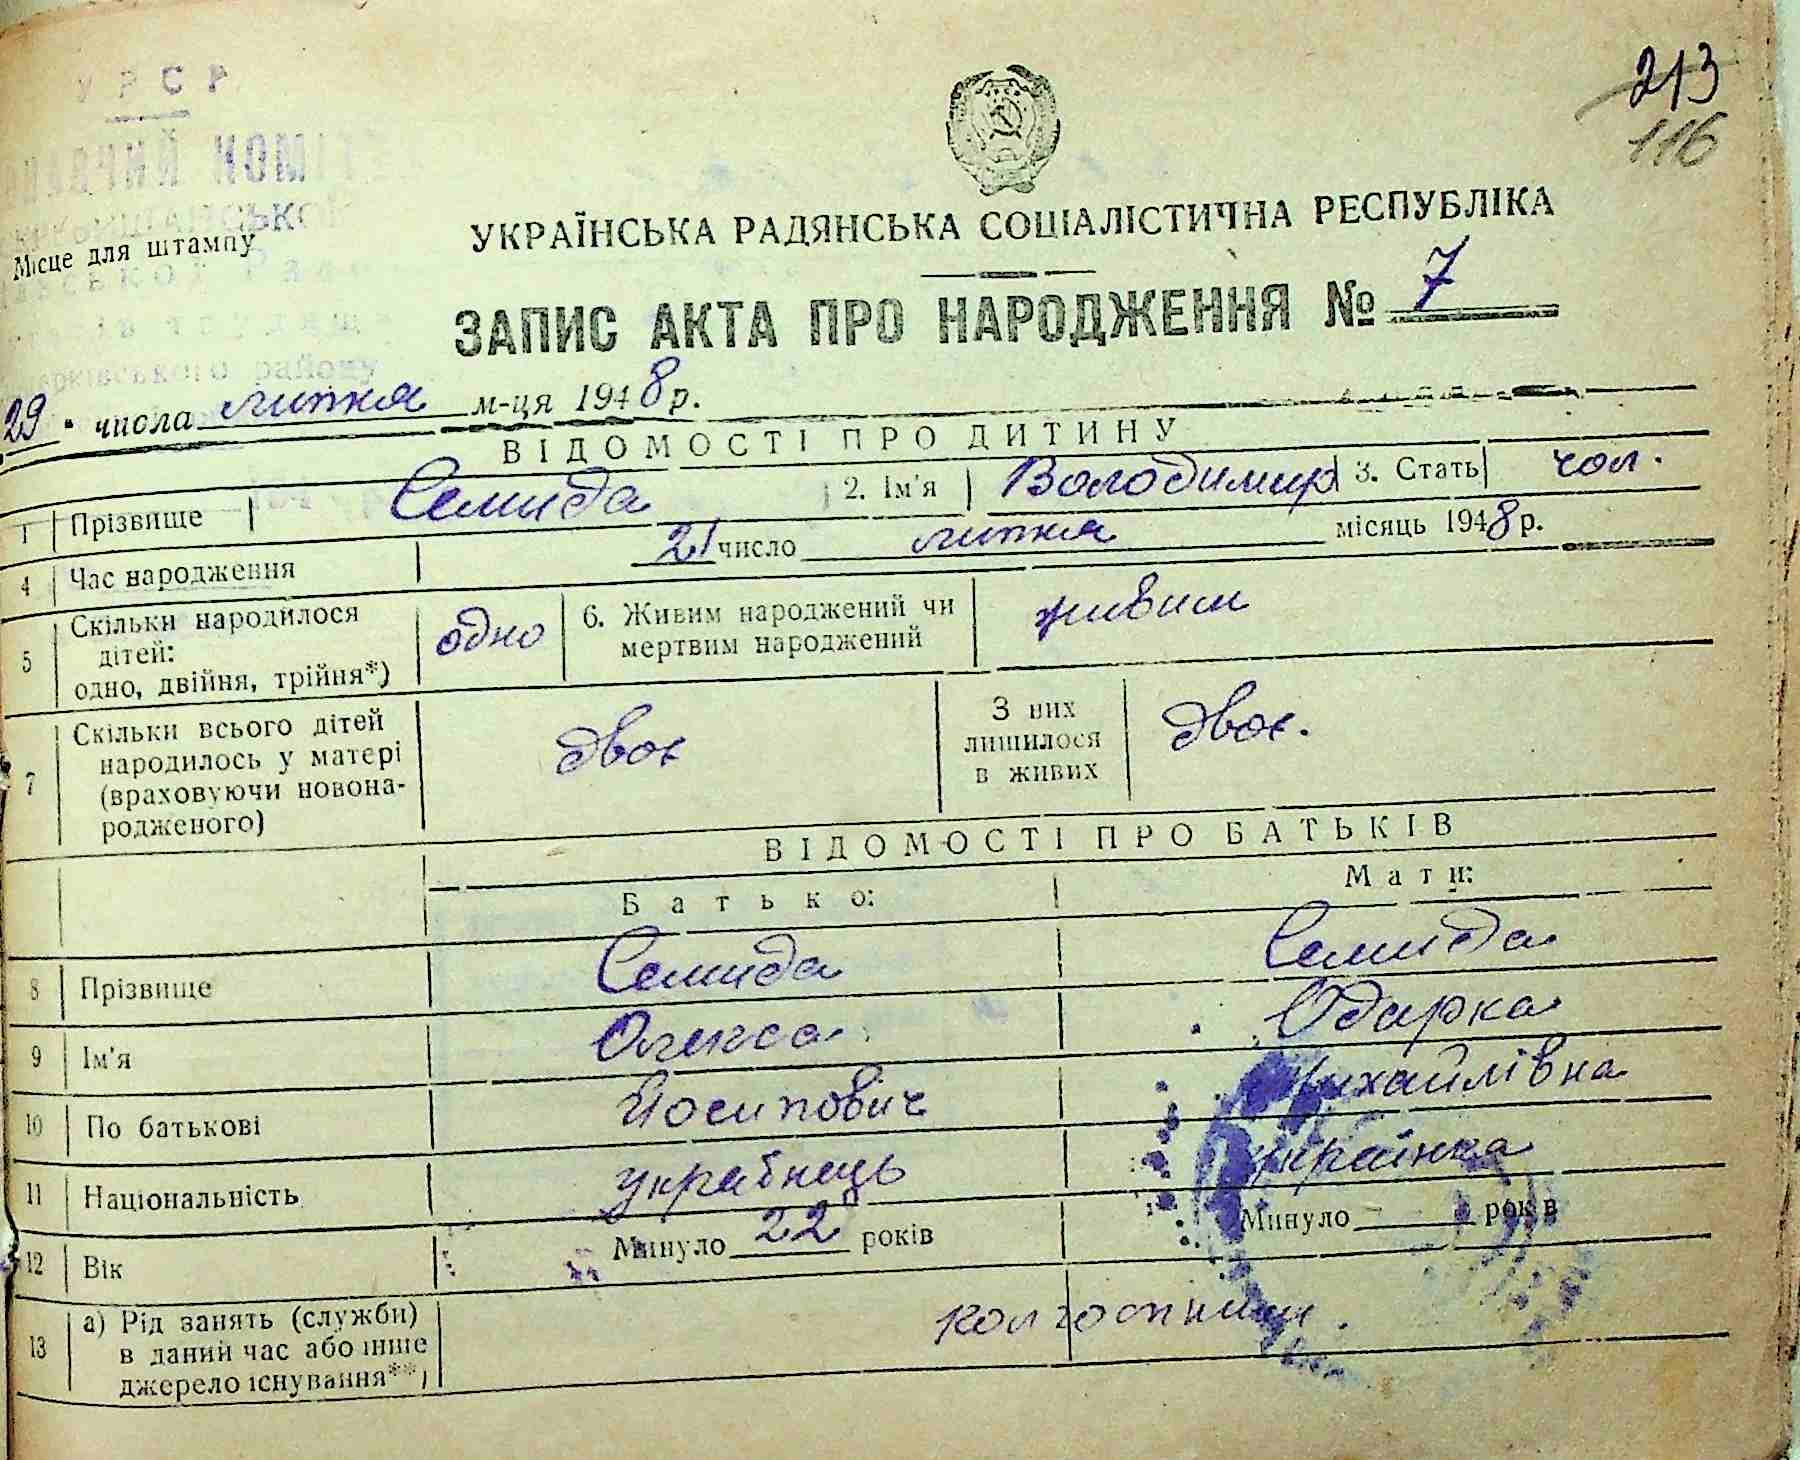 213
116
У Р С Р
Місце для штампу
УКРАЇНСЬКА РАДЯНСЬКА СОЦІАЛІСТИЧНА РЕСПУБЛІКА
ЗАПИС АКТА ПРО НАРОДЖЕННЯ № 7
району
29 числа липня м-ця 1948 р.
ВІДОМОСТІ ПРО ДИТИНУ
1 Прізвище Семида 2. Ім'я Володимир 3. Стать чол.
4 Час народження 21 число липня місяць 1948 р.
5 Скільки народилося дітей: одно, двійня, трійня*) одно 6. Живим народжений чи мертвим народжений живим
7 Скільки всього дітей народилось у матері (враховуючи новонародженого) двоє З них лишилося в живих двоє.
ВІДОМОСТІ ПРО БАТЬКІВ
Батько: Мати:
8 Прізвище Семида Семида
9 Ім'я Олекса Одарка
10 По батькові Йосипович Михайлівна
11 Національність українець українка
12 Вік Минуло 22 років Минуло років
13 а) Рід занять (служби) в даний час або інше джерело існування**) колгоспники.